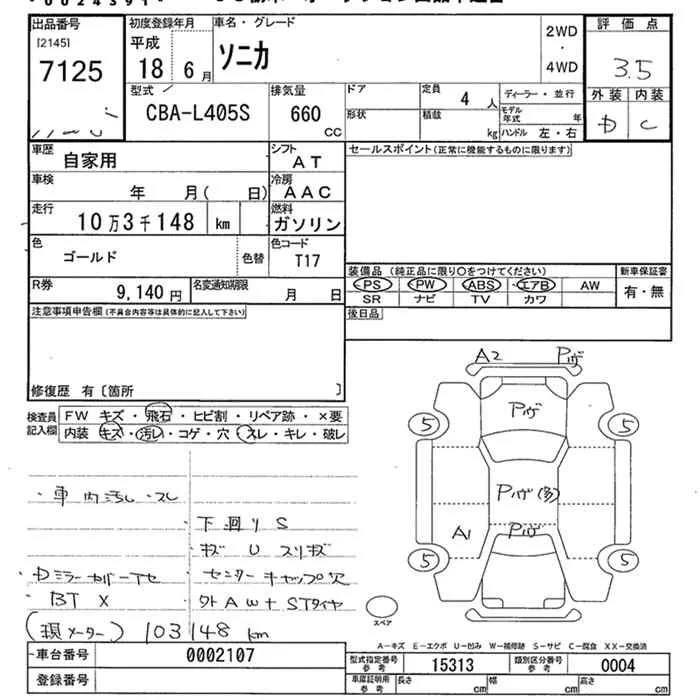 出品番号 初度登録年月 車名・グレード 2WD 評価点
[2145] 平成 ソニカ ・
7125 18 6月 4WD 3.5
型式 排気量 ドア 定員 4人 ディーラー・並行 外装 内装
CBA-L405S 660 CC 形状 積載 kg モデル年式 年 D C
ハンドル 左・右
車歴 自家用 シフト AT セールスポイント(正常に機能するものに限ります)
車検 年 月( 日) 冷房 AAC
走行 10万3千148 km 燃料 ガソリン
色 ゴールド 色替 色コード T17
装備品 (純正品に限り○をつけてください) 新車保証書
R券 9,140円 名変通知期限 月 日 PS PW ABS エアB AW 有・無
SR ナビ TV カワ
注意事項申告欄(不具合内容等は具体的に記入して下さい) 後日品
修復歴 有〔箇所 〕
検査員記入欄 FW キズ・飛石・ヒビ割・リペア跡・×要
内装 キズ・汚レ・コゲ・穴・スレ・キレ・破レ
A2 Pｷｽﾞ
Pｷｽﾞ
5 5
Pｷｽﾞ(多)
A1 Pｷｽﾞ
5 5
・車内汚レ・スレ
下回りS
キズ U スリキズ
Dミラーカバーワレ センターキャップ欠
BT X 外AW+STタイヤ
(現メーター) 103148 km スペア
A-キズ E-エクボ U-凹み W-補修跡 S-サビ C-腐食 XX-交換済
車台番号 0002107 型式指定番号 参考 15313 類別区分番号 参考 0004
登録番号 車庫証明用 参考 長さ cm 幅 cm 高さ cm